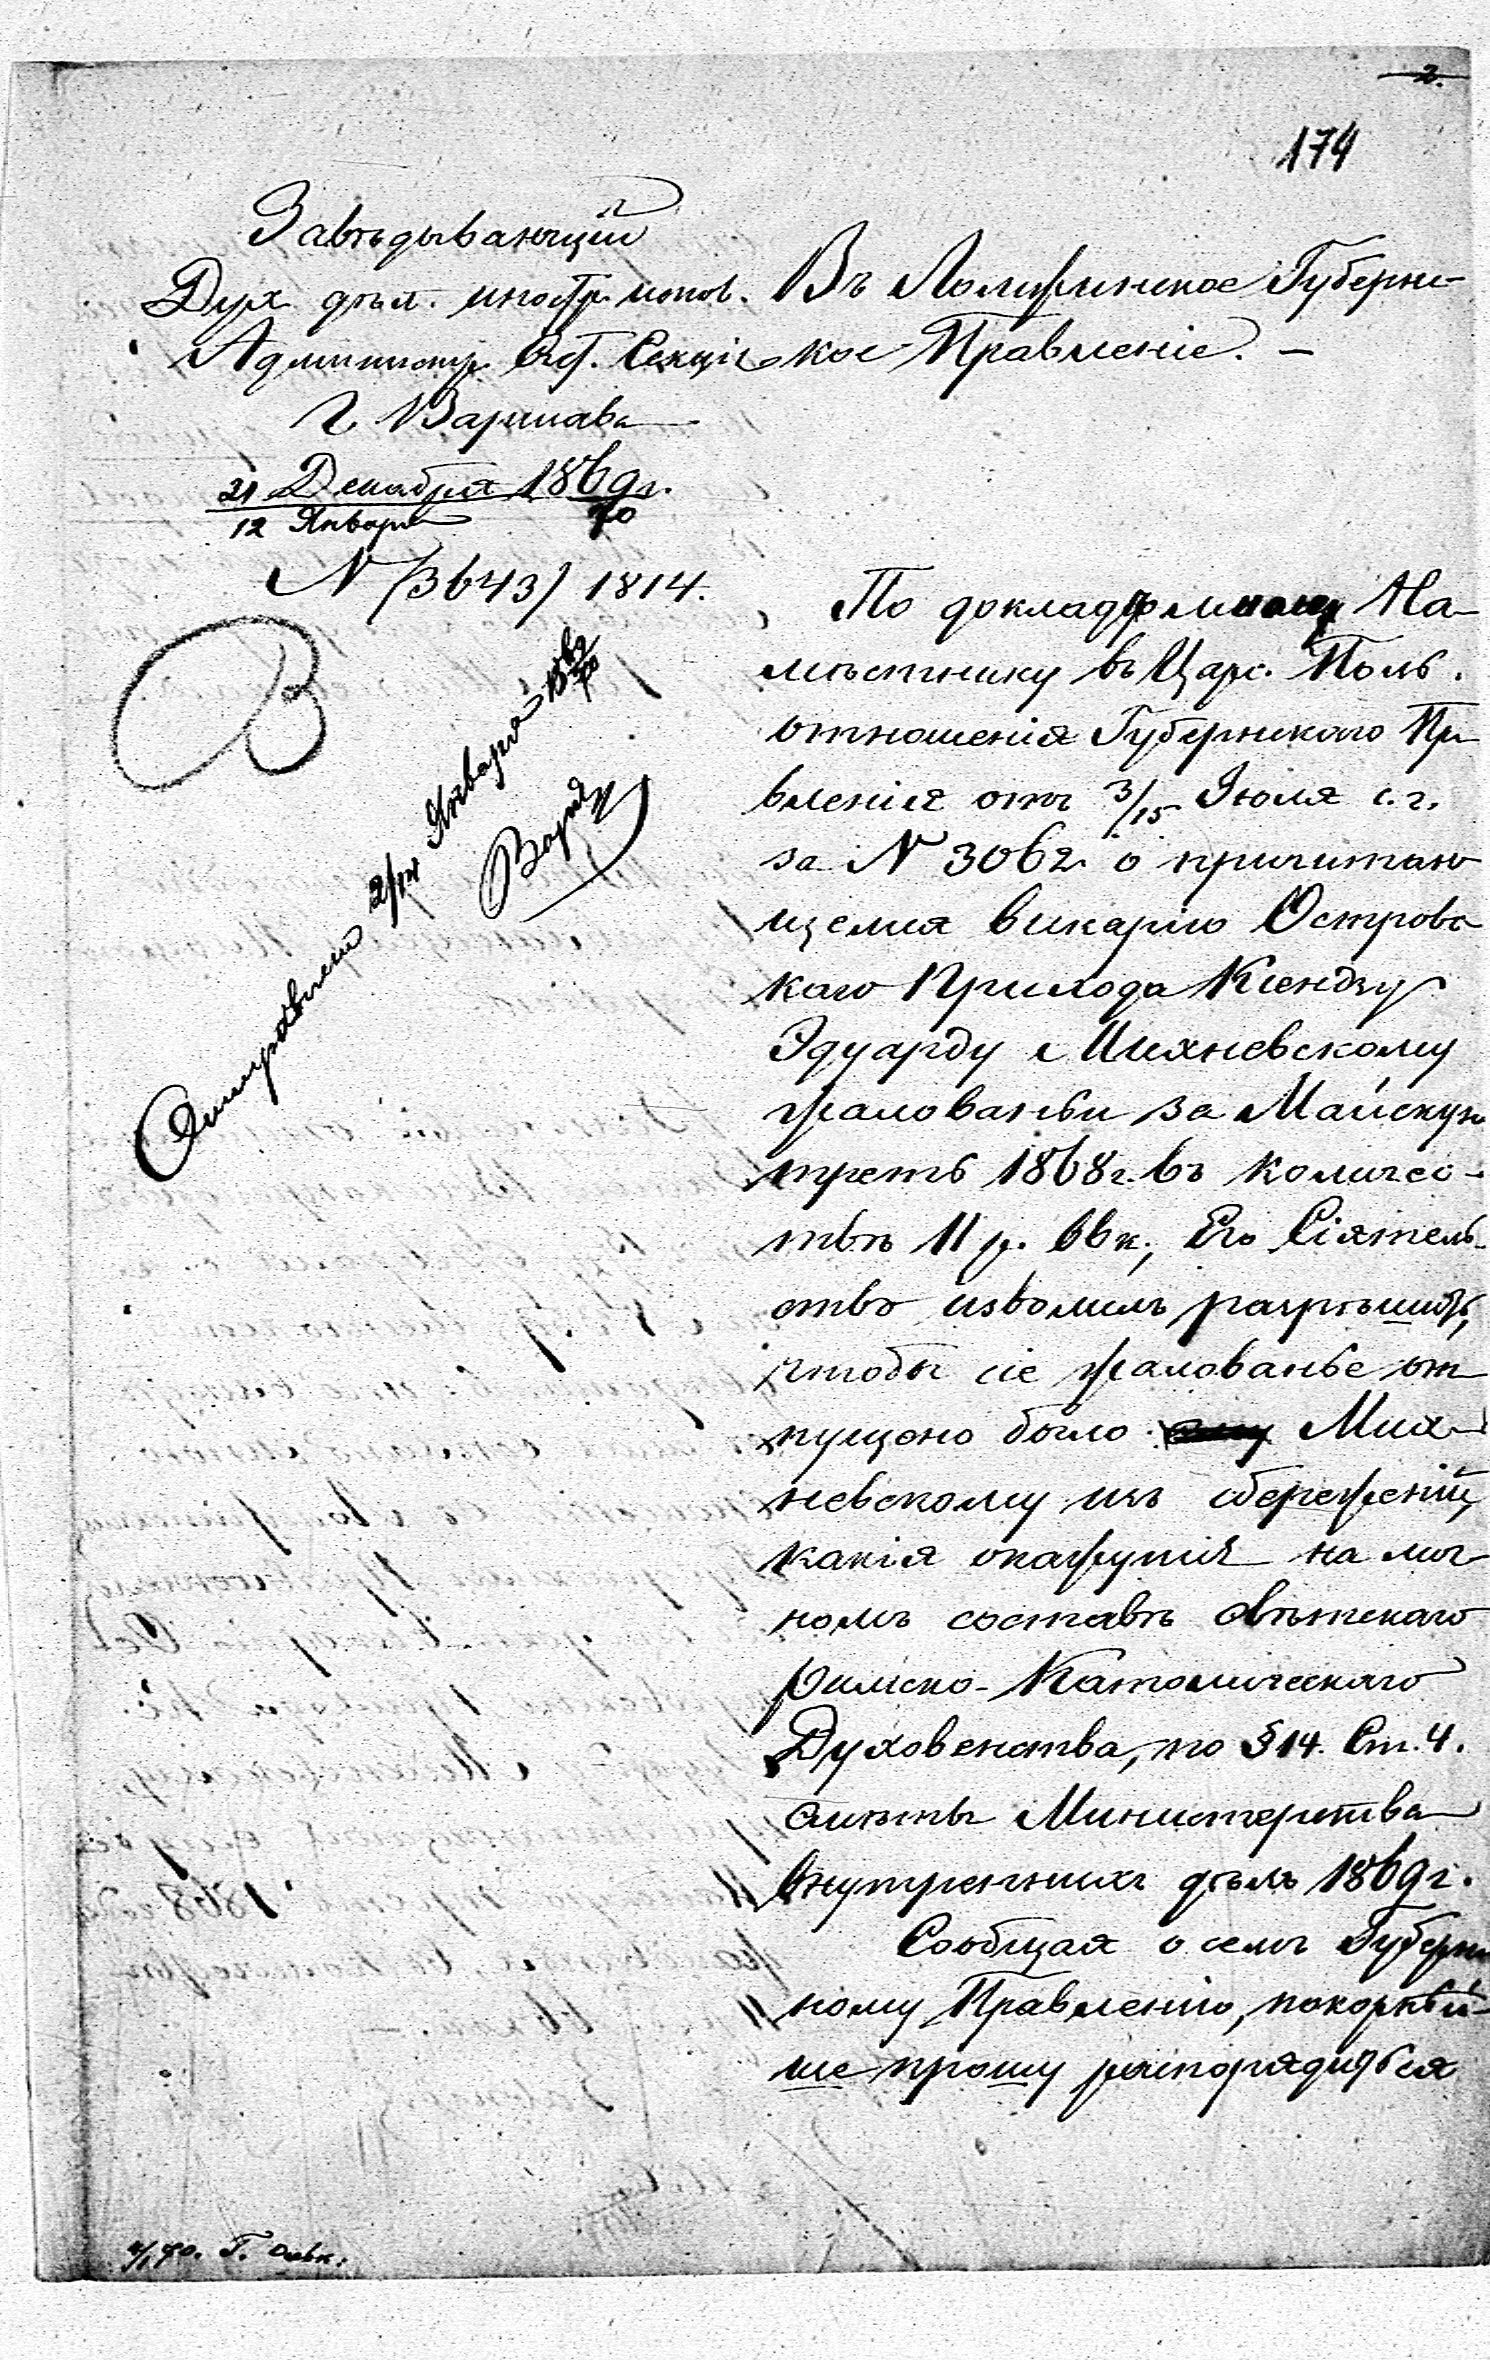 2.
174
Завѣдывающій
Дух. дѣл. иностр. испов.
Администр. Отд. Секція
г. Варшава
31 Декабря 1869 г.
12 Января 70
N (3643) 1814.
Въ Ломжинское Губернс-
кое Правленіе. –
Отправленъ 2/14 Января 1869/70
По докладѣ мною На-
мѣстнику въ Царс. Поль.
отношенія Губернскаго Пра
вленія отъ 3/15 Іюля с. г.
за N 3062 о причитаю
щемся викарію Островс
каго Прихода Ксендзу
Эдуарду Михневскому
жалованьи за Майскую
треть 1868 г. въ количес-
твѣ 11 р. 66 к., Его Сіятель-
ство изволилъ разрѣшить,
чтобы сіе жалованье от
пущено было Мих-
невскому изъ сбереженій,
какія окажутся на лич
номъ составѣ свѣтскаго
римско-Католическаго
Духовенства, по § 14. Ст. 4.
смѣты Министерства
внутреннихъ дѣлъ 1869 г.
Сообщая о семъ Губернс
кому Правленію, покорнѣй-
ше прошу распорядиться